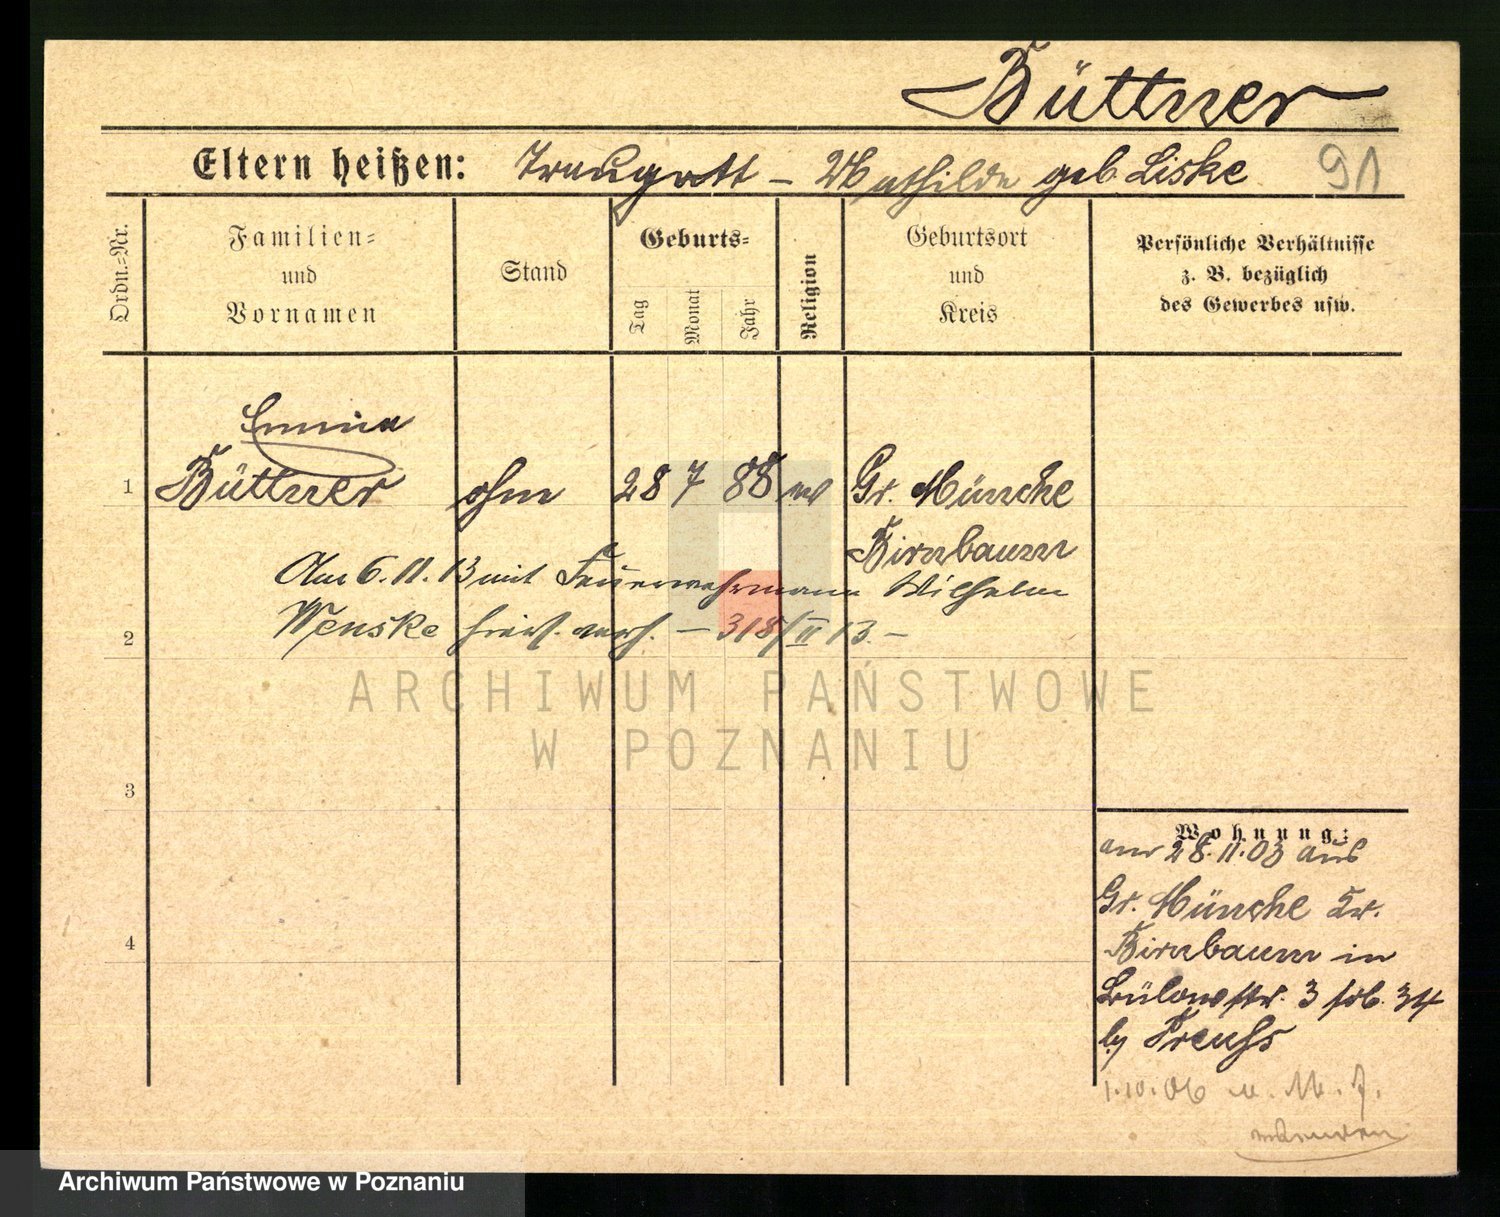 Büttner
Eltern heißen: Traugott – Mathilde geb. Liske 91
Ordn.-Nr.
Familien-
und
Vornamen
Stand
Geburts-
Tag
Monat
Jahr
Religion
Geburtsort
und
Kreis
Persönliche Verhältnisse
z. B. bezüglich
des Gewerbes usw.
Emma
1 Büttner ohne 28 7 88 Gr. Münche
Birnbaum
Am 6. 11. 13 mit Feuerwehrmann Wilhelm
2 Wenske – 318/II 13. –
3
4
Wohnung:
am 28. 11. 03 aus
Gr. Münche Kr.
Birnbaum in
Bülowstr. 3
by Preuß
1.10.06
ARCHIWUM PAŃSTWOWE
W POZNANIU
Archiwum Państwowe w Poznaniu